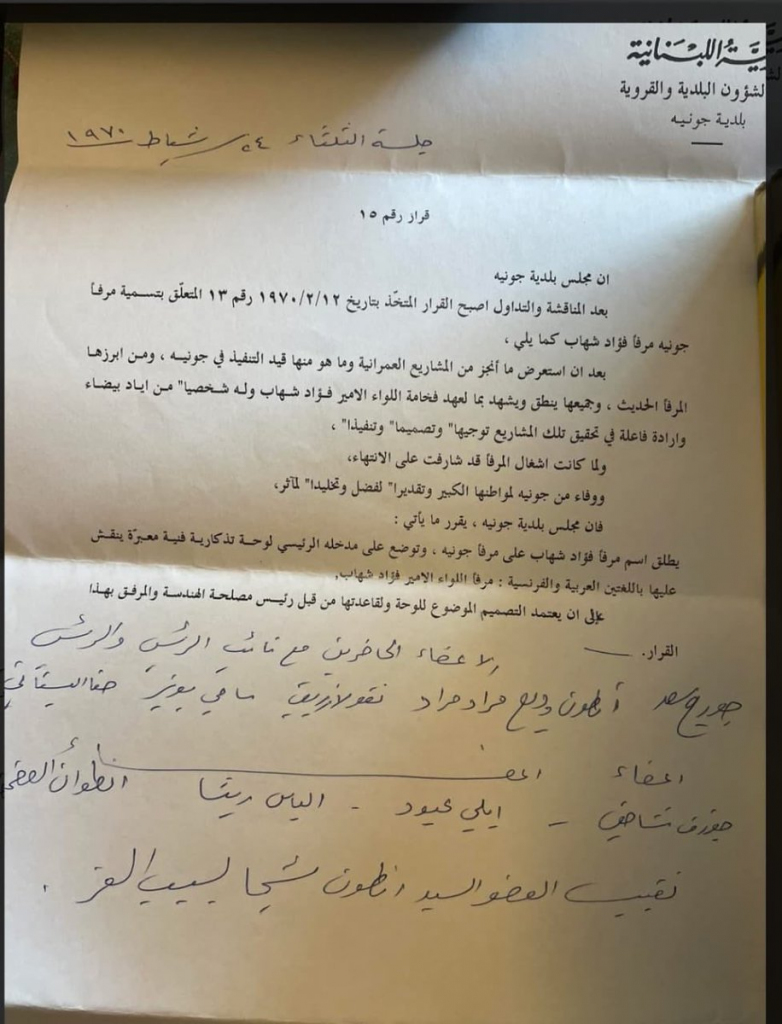 ـيَّةُ اللبْنَانية
لشؤون البلدية والقروية
بلدية جونيه
جلسة الثلثاء ٢٤ شباط ١٩٧٠
قرار رقم ١٥
ان مجلس بلدية جونيه
بعد المناقشة والتداول اصبح القرار المتخّذ بتاريخ ١٩٧٠/٢/١٢ رقم ١٣ المتعلّق بتسمية مرفأ
جونيه مرفأ فؤاد شهاب كما يلي ،
بعد ان استعرض ما أنجز من المشاريع العمرانية وما هو منها قيد التنفيذ في جونيــه ، ومـن ابرزهـا
المرفأ الحديث ، وجميعها ينطق ويشهد بما لعهد فخامة اللواء الامير فـؤاد شـهاب ولـه شـخصيا" مـن ايـاد بيضـاء
وارادة فاعلة في تحقيق تلك المشاريع توجيها" وتصميما" وتنفيذا" ،
ولما كانت اشغال المرفأ قد شارفت على الانتهاء،
ووفاء من جونيه لمواطنها الكبير وتقديرا" لفضل وتخليدا" لمآثر،
فان مجلس بلدية جونيه ، يقرر ما يأتي :
يطلق اسم مرفأ فؤاد شهاب على مرفأ جونيه ، وتوضع على مدخله الرئيسي لوحـة تذكاريـة فنية معبرّة ينقـش
عليها باللغتين العربية والفرنسية : مرفأ اللواء الامير فؤاد شهاب.
على ان يعتمد التصميم الموضوع للوحة ولقاعدتها من قبل رئيس مصلحة الهندسة والمرفق بهذا
القرار.
الاعضاء الحاضرين مع نائب الرئيس والرئيس
جورج سعد أنطون وديع مراد مراد نقولا زريق سامي بويز حنا البستاني
اعضاء اعضاء
جوزف شاهين - ايلي عبود - الياس ريشا انطوان
تغيب العضو السيد انطون شيحا لسبب السفر .